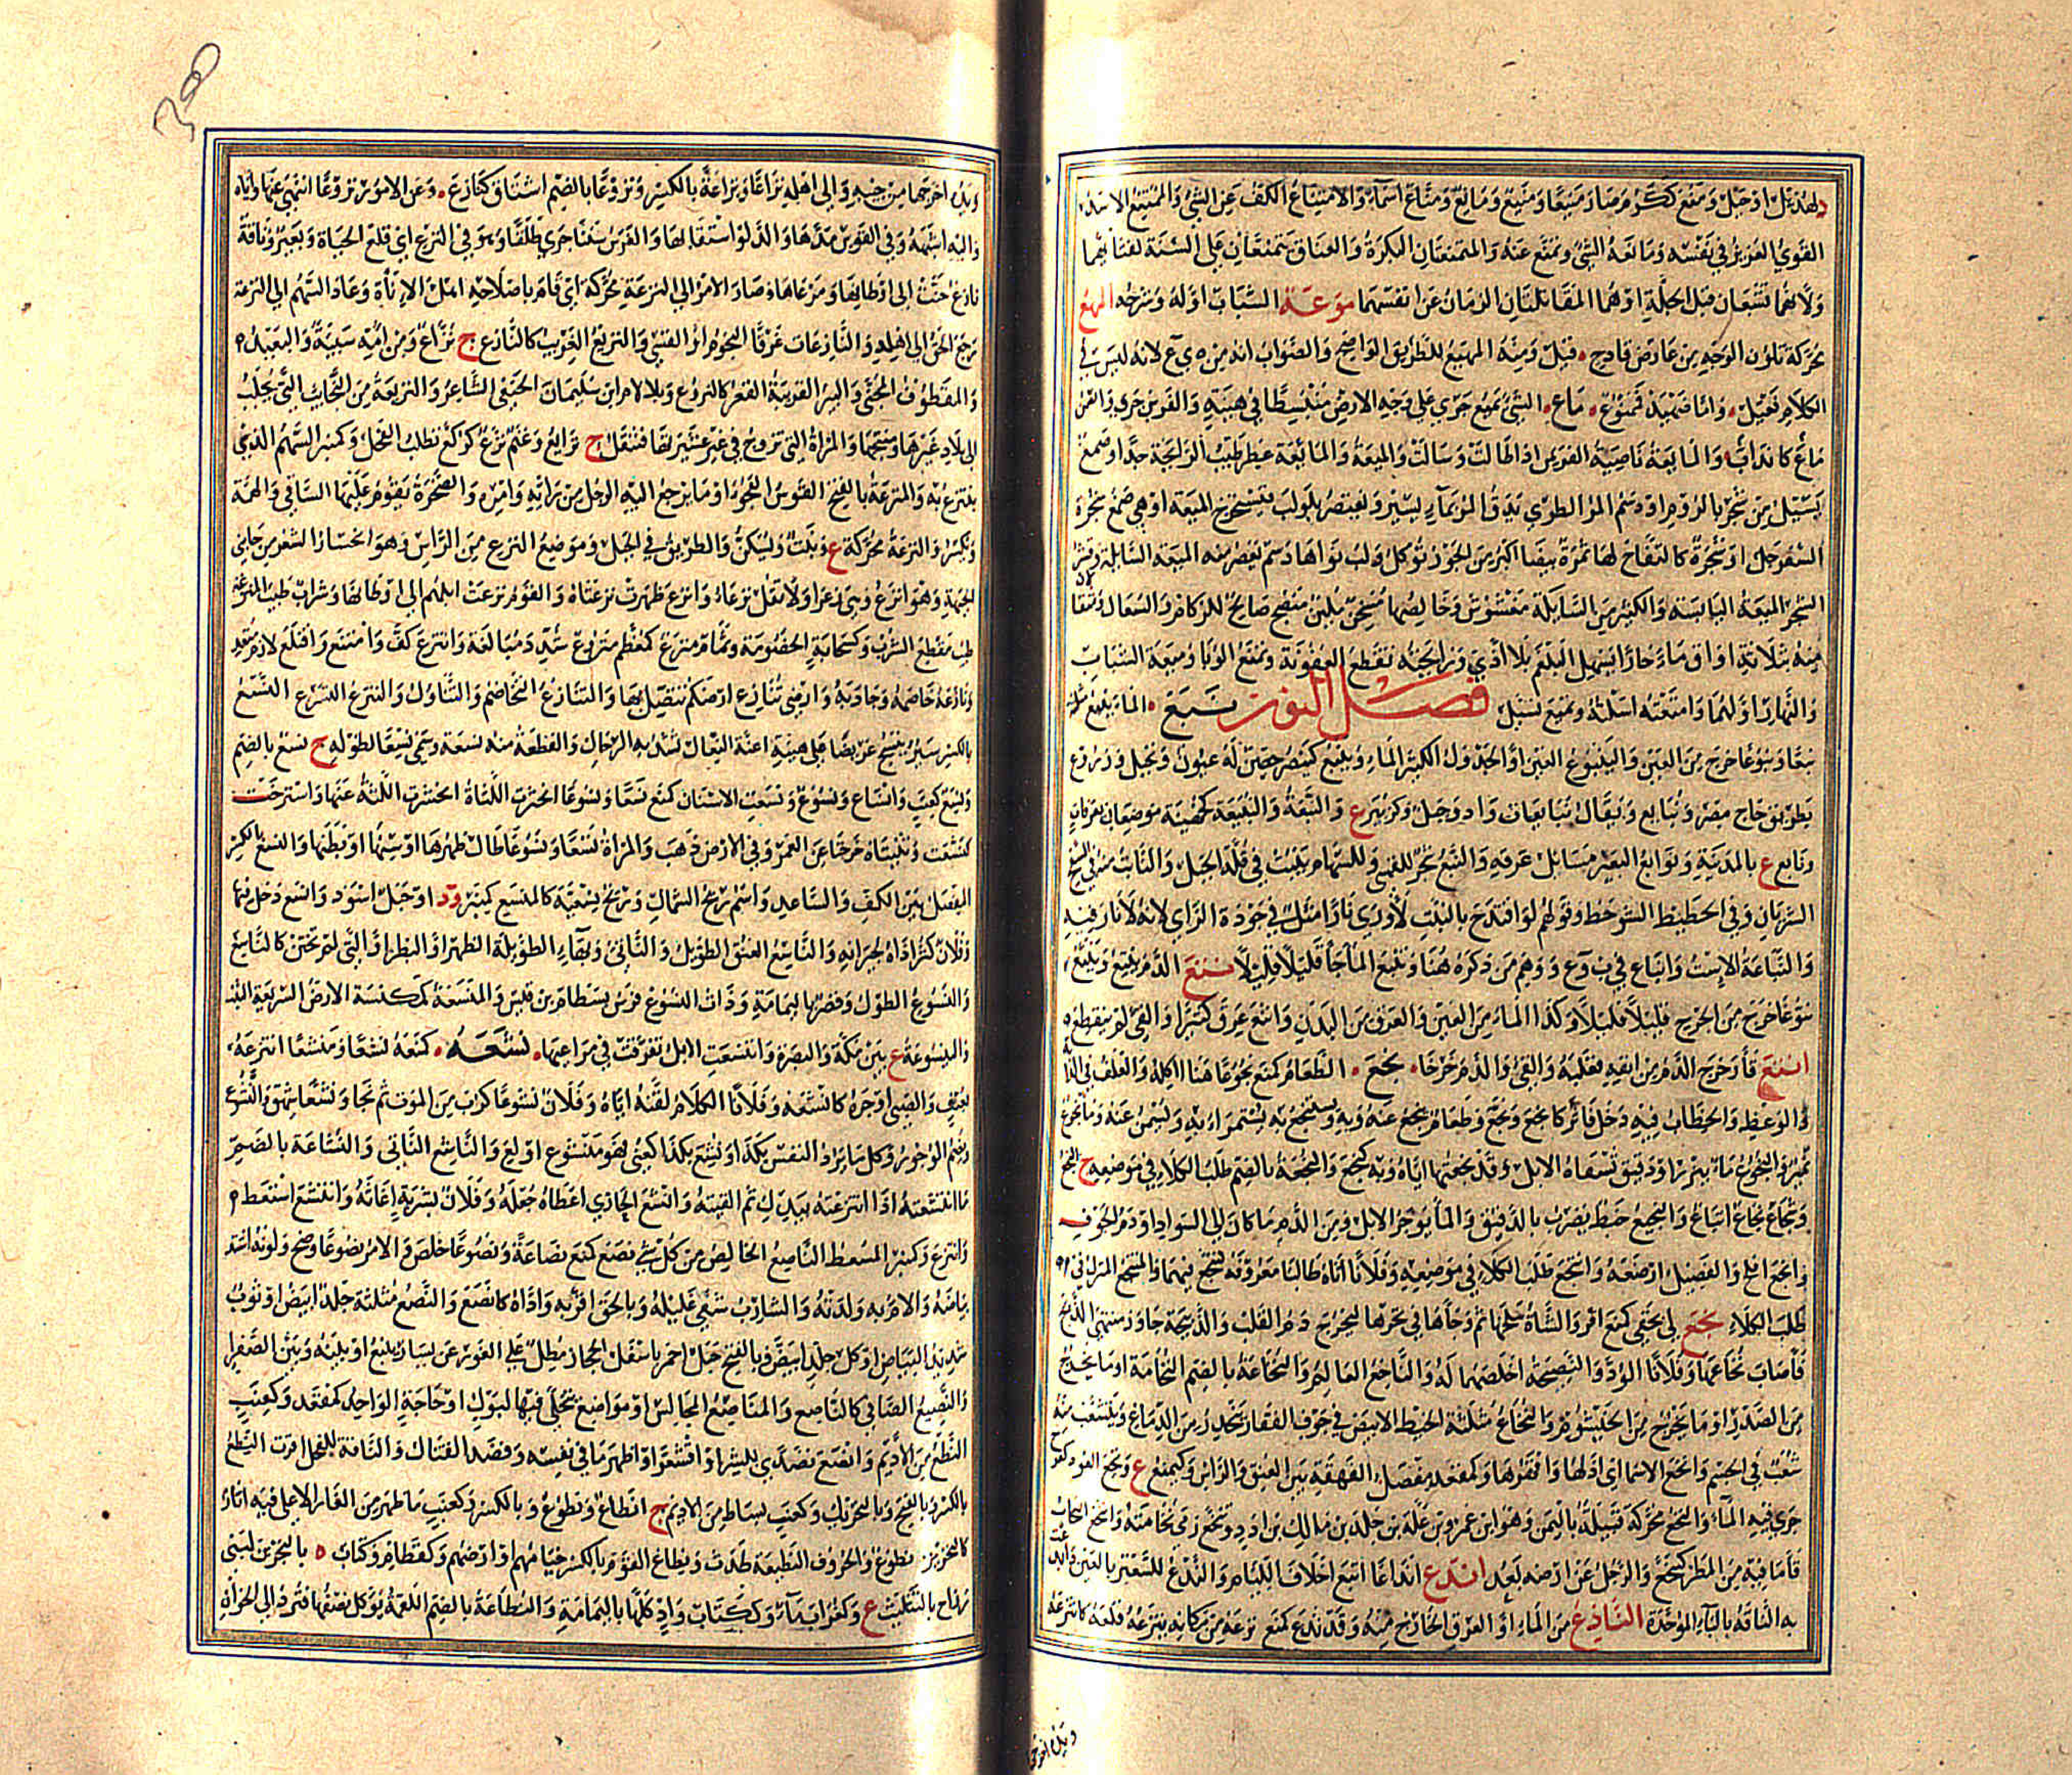 لهذيل او جبل ومنع ككرم صار منيعا ومنيع ومانع ومناع اسماء والامتناع الكف عن الشئ والممتنع الاسد
القوي العزيز في نفسه ومانعه الشئ وتمنع عنه والمتمنعتان البكرة والعناق يتمنعان على السنة لفتائهما
ولانهما تشبعان قبل الجلة او هما المقاتلتان الزمان عن انفسهما موعة الشباب اوله وشرخه المهع
محركة تلون الوجه من عارض فادح قيل ومنه المهيع للطريق الواضح والصواب انه من ه ي ع لانه ليس في
الكلام فعيل واما ضهيد فمصنوع ماع الشئ يميع جرى على وجه الارض منبسطا في هينة والفرس جرى والسمن
ماع كانذاب والمايعة ناصية الفرس اذا طالت وسالت والميعة والمايعة عطر طيب الرايحة جدا او صمغ
يسيل من شجر بالروم او دسم المر الطري يدق المر بماء يسير ويعتصر بلولب فتستخرج الميعة او هي صمغ شجرة
السفرجل او شجرة كالتفاح لها ثمرة بيضا اكبر من الجوز تؤكل ولب نواها دسم تعصر منه الميعة السايلة وقشر
الشجر الميعة اليابسة والكثير من السايلة مغشوش وخالصها مسخن ملين منضج صالح للزكام والسعال
منه ثلاثة اواق ماء حارا يسهل البلغم بلا اذى ورايحته تقطع العفونة وتمنع الوبا وميعة الشباب
والنهار اولهما وامتعته اسلته وتميع تسيل فصل النون نبع الماء ينبع
نبعا ونبوعا خرج من العين والينبوع العين او الجدول الكثير الماء وينبع كينصر حصن له عيون ونخيل وزروع
بطريق حاج مصر ونبايع ويقال نبايعات واد وجبل ع والنبعة والنبيعة كجهينة موضعان بعرفات
ونابع ع بالمدينة ونوابع البعير مسايل عرقه والنبع شجر للقسي وللسهام ينبت في قلة الجبل والنابت منه في السفح
الشريان وفي الحضيض الشوحط وقولهم لو اقتدح بالنبع لأورى نارا مثل في جودة الراي لانه لا نار فيه
والنباعة الاست وانباع في ب و ع ووهم من ذكره هنا وتنبع الماء جاء قليلا قليلا نتع الدم ينتع وينتع
نتوعا خرج من الجرح قليلا قليلا وكذا الماء من العين والعرق من البدن وانتع عرق كثيرا والقي لم ينقطع
انثع قاء وخرج الدم من انفه فغلبه والقي والدم خرجا نجع الطعام كمنع نجوعا هنا اكله والعلف في الدابة
والوعظ والخطاب فيه دخل فاثر كانجع ونجع وطعام ينجع عنه وبه ويستنجع به يستمرأ به ويسمن عنه وماء نجوع
نمير والنجوع ماء ببزر او دقيق تسقاه الابل وقد نجعتها اياه وبه كنجع والنجعة بالضم طلب الكلاء في موضعه ج النجع
ونجاع نجاع اتباع والنجيع خبط يضرب بالدقيق والماء يوجر الابل ومن الدم ما كان الى السواد او دم الجوف
وانجع افلح والفصيل ارضعه وانتجع طلب الكلاء في موضعه وفلانا اتاه طالبا معروفه كتنجع فيهما والمنتجع المنزل في
طلب الكلاء نخع لي بحقي كمنع اقر والشاة سلخها ثم وجاها في نحرها ليخرج دم القلب والذبيحة جاوز منتهى الذبح
فاصاب نخاعها وفلانا الود والنصيحة اخلصهما له والناخع العالم والنخاعة بالضم النخامة او ما يخرج
من الصدر او ما يخرج من الخيشوم والنخاع مثلثة الخيط الابيض في جوف الفقار ينحدر من الدماغ ويتشعب منه
شعب في الجسم وانخع الاسما اي اذلها واقهرها وكمقعد مفصل الفهقة بين العنق والراس وكيمنع ع ونخع العود كفرح
جرى فيه الماء والنخع محركة قبيلة باليمن وهو ابن عمرو بن علة بن جلد بن مالك بن ادد وتنخع رمى نخامته وانتخع السحاب
قاء ما فيه من المطر كتنخع والرجل عن ارضه بعد اندع انداعا اتبع اخلاف اللئام والندع للسعتر بالغين
به الناقة بالباء الموحدة الناذع من الماء او العرق الخارج منه وقد نذع كمنع نزعه من مكانه ينزعه قلعه كانتزعه
ويده اخرجها من جيبه والى اهله نزاعا ونزاعة بالكسر ونزوعا بالضم اشتاق كنازع وعن الامور نزوعا انتهى عنها واباه
واليه اشبهه وفي القوس مدها والدلو استقى بها والفرس سننا جرى طلقا وهو في النزع اي قلع الحياة وبعير وناقة
نازع حنت الى اوطانها ومرعاها وصار الامر الى النزعة محركة اي قام باصلاحه اهل الاناة وعاد السهم الى النزعة
رجع الحق الى اهله والنازعات غرقا النجوم او القسي والنزيع الغريب كالنازع ج نزاع ومن امه سبية والبعيد
والمقطوف المجتنى والبئر القريبة القعر كالنزوع وبلا لام ابن سليمان الحنفي الشاعر والنزيعة من النجايب التي تجلب
الى بلاد غيرها ومنتجها والمراة التي تزوج في غير عشيرتها فتنقل ج نزايع وغنم نزع كركع تطلب الفحل وكمنبر السهم الذي
ينتزع به والمنزعة بالفتح القوس الفجواء وما يرجع اليه الرجل من رايه وامره والصخرة يقوم عليها الساقي والهمة
وتكسر والنزعة محركة ع ونبت وتسكن والطريق في الجبل وموضع النزع من الراس وهو انحسار الشعر من جانبي
الجبهة وهو انزع وهي زعراء ولا تقل نزعاء وانزع ظهرت نزعتاه والقوم نزعت ابلهم الى اوطانها وشراب طيب المنزعة
طيب مقطع الشرب وكسحابة الخصومة وثمام منزع كمعظم منزوع شدد مبالغة وانتزع كف وامتنع واقتلع لازم متعد
ونازعه خاصمه وجاذبه وارضي تنازع ارضكم تتصل بها والتنازع التخاصم والتناول والتنزع التسرع النسع
بالكسر سير ينسج عريضا على هيئة اعنة النعال تشد به الرحال والقطعة منه نسعة وسمي نسعا لطوله ج نسع بالضم
ونسع كعنب وانساع ونسوع ونسعت الاسنان كمنع نسعا ونسوعا انحسرت اللثة عنها واسترخت
كنسعت وثنيتاه خرجتا عن العمر وفي الارض ذهب والمراة نسعا ونسوعا طال ظهرها او سنها او بطنها والنسع بالكسر
المفصل بين الكف والساعد واسم ريح الشمال وريح نسعية كالمنسع كمنبر ود او جبل اسود وانسع دخل فيها
وفلان كثر اذاه لجيرانه والناسع العنق الطويل والناتئ وبهاء الطويلة الظهر او البظر او التي لم تختن كالناسع
والنسوع الطول وقصر باليمامة وذات النسوع فرس بسطام بن قيس والمنسعة كمكنسة الارض السريعة النبت
والينسوعة ع بين مكة والبصرة وانتسعت الابل تفرقت في مراعيها نشعه كمنعه نشعا ومنشعا انتزعه
بعنف والصبي اوجره كانشعه وفلانا الكلام لقنه اياه وفلان نشوعا كرب من الموت ثم نجا ونشعا شهق والنشوع
ويضم الوجور وكل ما يرد النفس بكذا ونشع بكذا كعنى فهو منشوع اولع والناشع الناتي والنشاعة بالضم
ما انتشعته اذا انتزعته بيدك ثم القيته وانشع الحازي اعطاه جعله وفلان بشربة اغاثه وانتشع استعط
وانتزع وكمنبر المسعط الناصع الخالص من كل شئ نصع كمنع نصاعة ونصوعا خلص والامر نصوعا وضح ولونه اشتد
بياضه والام به ولدته والشارب شفى غليله وبالحق اقر به واداه كانصع والنصع مثلثة جلد ابيض او ثوب
شديد البياض او كل جلد ابيض وبالفتح جبل احمر باسفل الحجاز مطل على الغور عن يسار ينبع او بينه وبين الصفراء
والنصيع الصافي كالناصع والمناصع المجالس او مواضع يتخلى فيها لبول او حاجة الواحد كمقعد وكعنب
النطع من الاديم وانصع تصدى للشر او اقشعر او اظهر ما في نفسه وقصد القتال والناقة للفحل اقرت النطع
بالكسر وبالفتح وبالتحريك وكعنب بساط من الاديم ج انطاع ونطوع وبالكسر وكعنب ما ظهر من الغار الاعلى فيه اثار
كالتحزيز نطوع والحروف النطعية طدت ونطاع القوم بالكسر خيامهم او ارضهم وكقطام وكتاب ه بالبحرين لبني
رزاح بالتثليث ع وكغراب ماء وككتاب واد كلها باليمامة والنطاعة بالضم اللقمة يؤكل نصفها فترد الى الخوان
ويده اخرجها